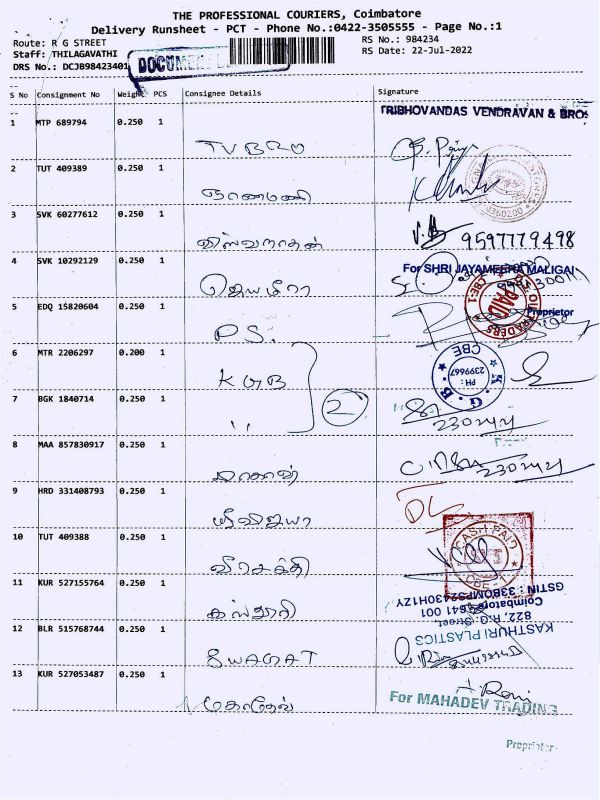 THE PROFESSIONAL COURIERS, Coimbatore
Delivery Runsheet - PCT - Phone No.:0422-3505555 - Page No.:1
Route: R G STREET RS No.: 984234
Staff: THILAGAVATHI RS Date: 22-Jul-2022
DRS No.: DCJB98423401
S No Consignment No Weight PCS Consignee Details Signature
TRIBHOVANDAS VENDRAVAN & BROS
1 MTP 689794 0.250 1
TVBRO
2 TUT 409389 0.250 1
ஞானமணி
3 SVK 60277612 0.250 1
விஸ்வநாதன் 9597779498
4 SVK 10292129 0.250 1
For SHRI JAYAMEENA MALIGAI
ஜெயமீரா
5 EDQ 15820604 0.250 1
PAID
CBE-1
Proprietor
P.S.
6 MTR 2206297 0.200 1
K.G.B. CBE
PH: 2399667
KGB
7 BGK 1840714 0.250 1
2
,,
8 MAA 857830917 0.250 1
9 HRD 331408793 0.250 1
10 TUT 409388 0.250 1
CASH PAID
CBE - 1
வீரசக்தி
11 KUR 527155764 0.250 1
கஸ்தூரி
KASTHURI PLASTICS
822, R.G. Street
Coimbatore - 641 001
12 BLR 515768744 0.250 1
SWAGAT
13 KUR 527053487 0.250 1
A. Rani
For MAHADEV TRADING
மகாதேவ்
Proprietor